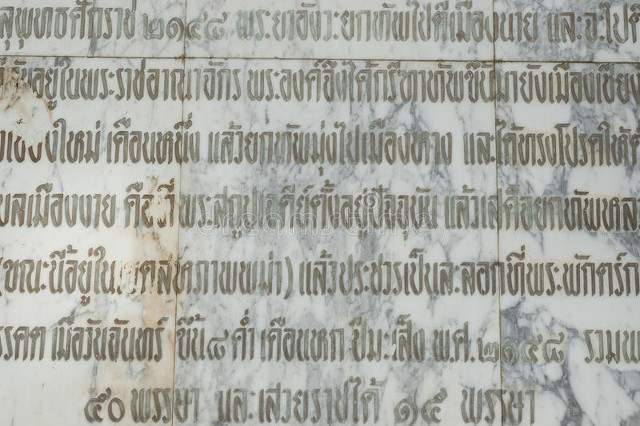 สุพุทธศักราช ๒๑๔๘ พระยาอังวะยกทัพไปตีเมืองนาย และจะไป
อยู่ในพระราชอาณาจักร พระองค์จึงได้กรีฑาทัพขึ้นมายังเมืองเชียง
หนึ่งเดือน แล้วยกทัพมุ่งไปเมืองหาง และได้ทรงโปรดให้
เมืองงาย คือ ที่พระสถูปเจดีย์ตั้งอยู่ปัจจุบัน แล้วเสด็จยกทัพหล
(ขณะนี้อยู่ในเขตสหภาพพม่า) แล้วประชวรเป็นละลอกที่พระพักตร์
รคต เมื่อวันจันทร์ ขึ้น ๘ ค่ำ เดือนหก ปีมะเส็ง พ.ศ. ๒๑๔๘ รวมพ
๕๐ พรรษา และเสวยราชได้ ๑๕ พรรษา
dreamstime